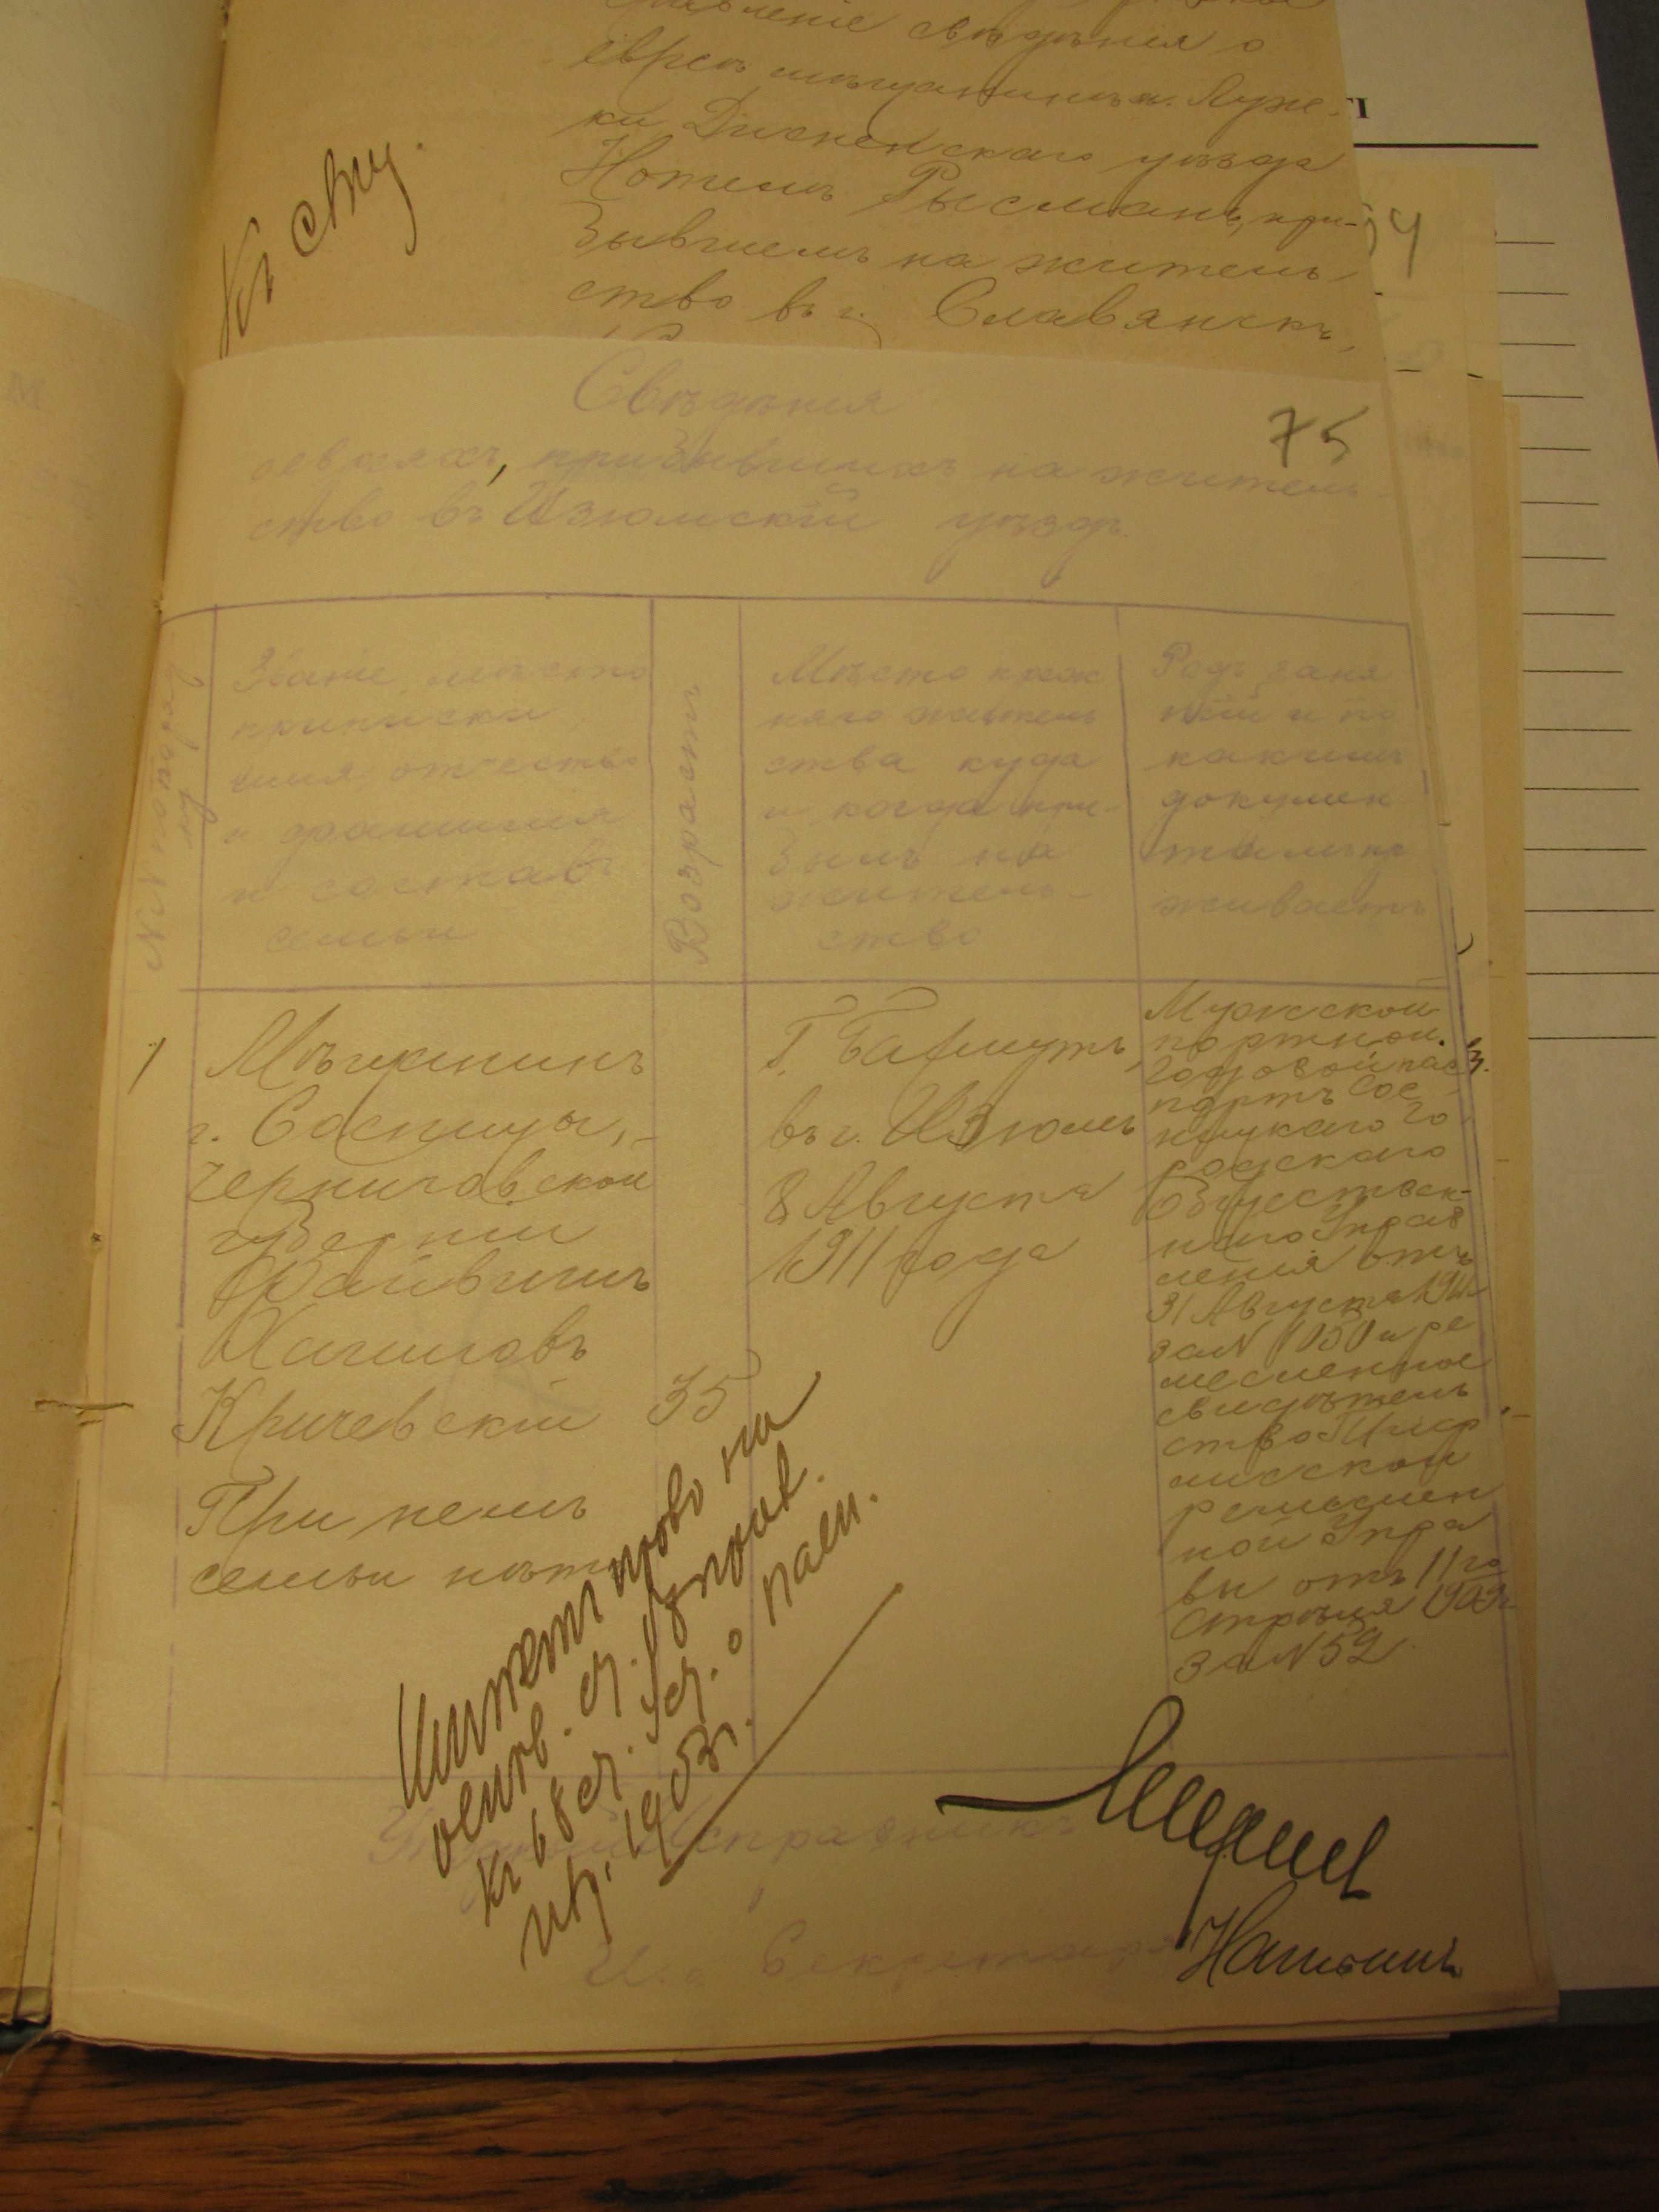 свѣдѣнія о
евреѣ мѣщанинѣ м. Луже-
ки Дисненскаго уѣзда
Нотелѣ Рысманъ, при-
бывшемъ на житель-
ство въ г. Славянскъ,
Къ свѣд.
Свѣдѣнія
75
о евреяхъ, прибывшихъ на житель-
ство въ Изюмскій уѣздъ.
№№ по порядку
Званіе, мѣсто
приписки
имя, отчество
и фамилія
и составъ
семьи
Возрастъ
Мѣсто преж
няго житель
ства куда
и когда при-
былъ на
житель-
ство
Родъ заня
тій и по
какимъ
докумен
тамъ про
живаетъ
1
Мѣщанинъ
г. Сосницы,
Черниговской
губерніи
Файвишъ
Хаимовъ
Кричевскій
35
При немъ
семьи нѣтъ
Г. Бахмутъ,
въ г. Изюмъ
8 Августа
1911 года
Мужской
портной.
Годовой пас
портъ Сос
ницкаго Го
родского
Обществен-
наго Управ
ленія отъ
31 Августа 191
за №
и ре
месленное
свидѣтель
ство
ремеслен
ной Упра
вы отъ 11 го
Апрѣля 1903 г
за № 52
Имѣетъ право на
осн.
къ 68 ст. о пасп.
изд. 1903 г.
Уѣздный Исправникъ
И. д. Секретаря